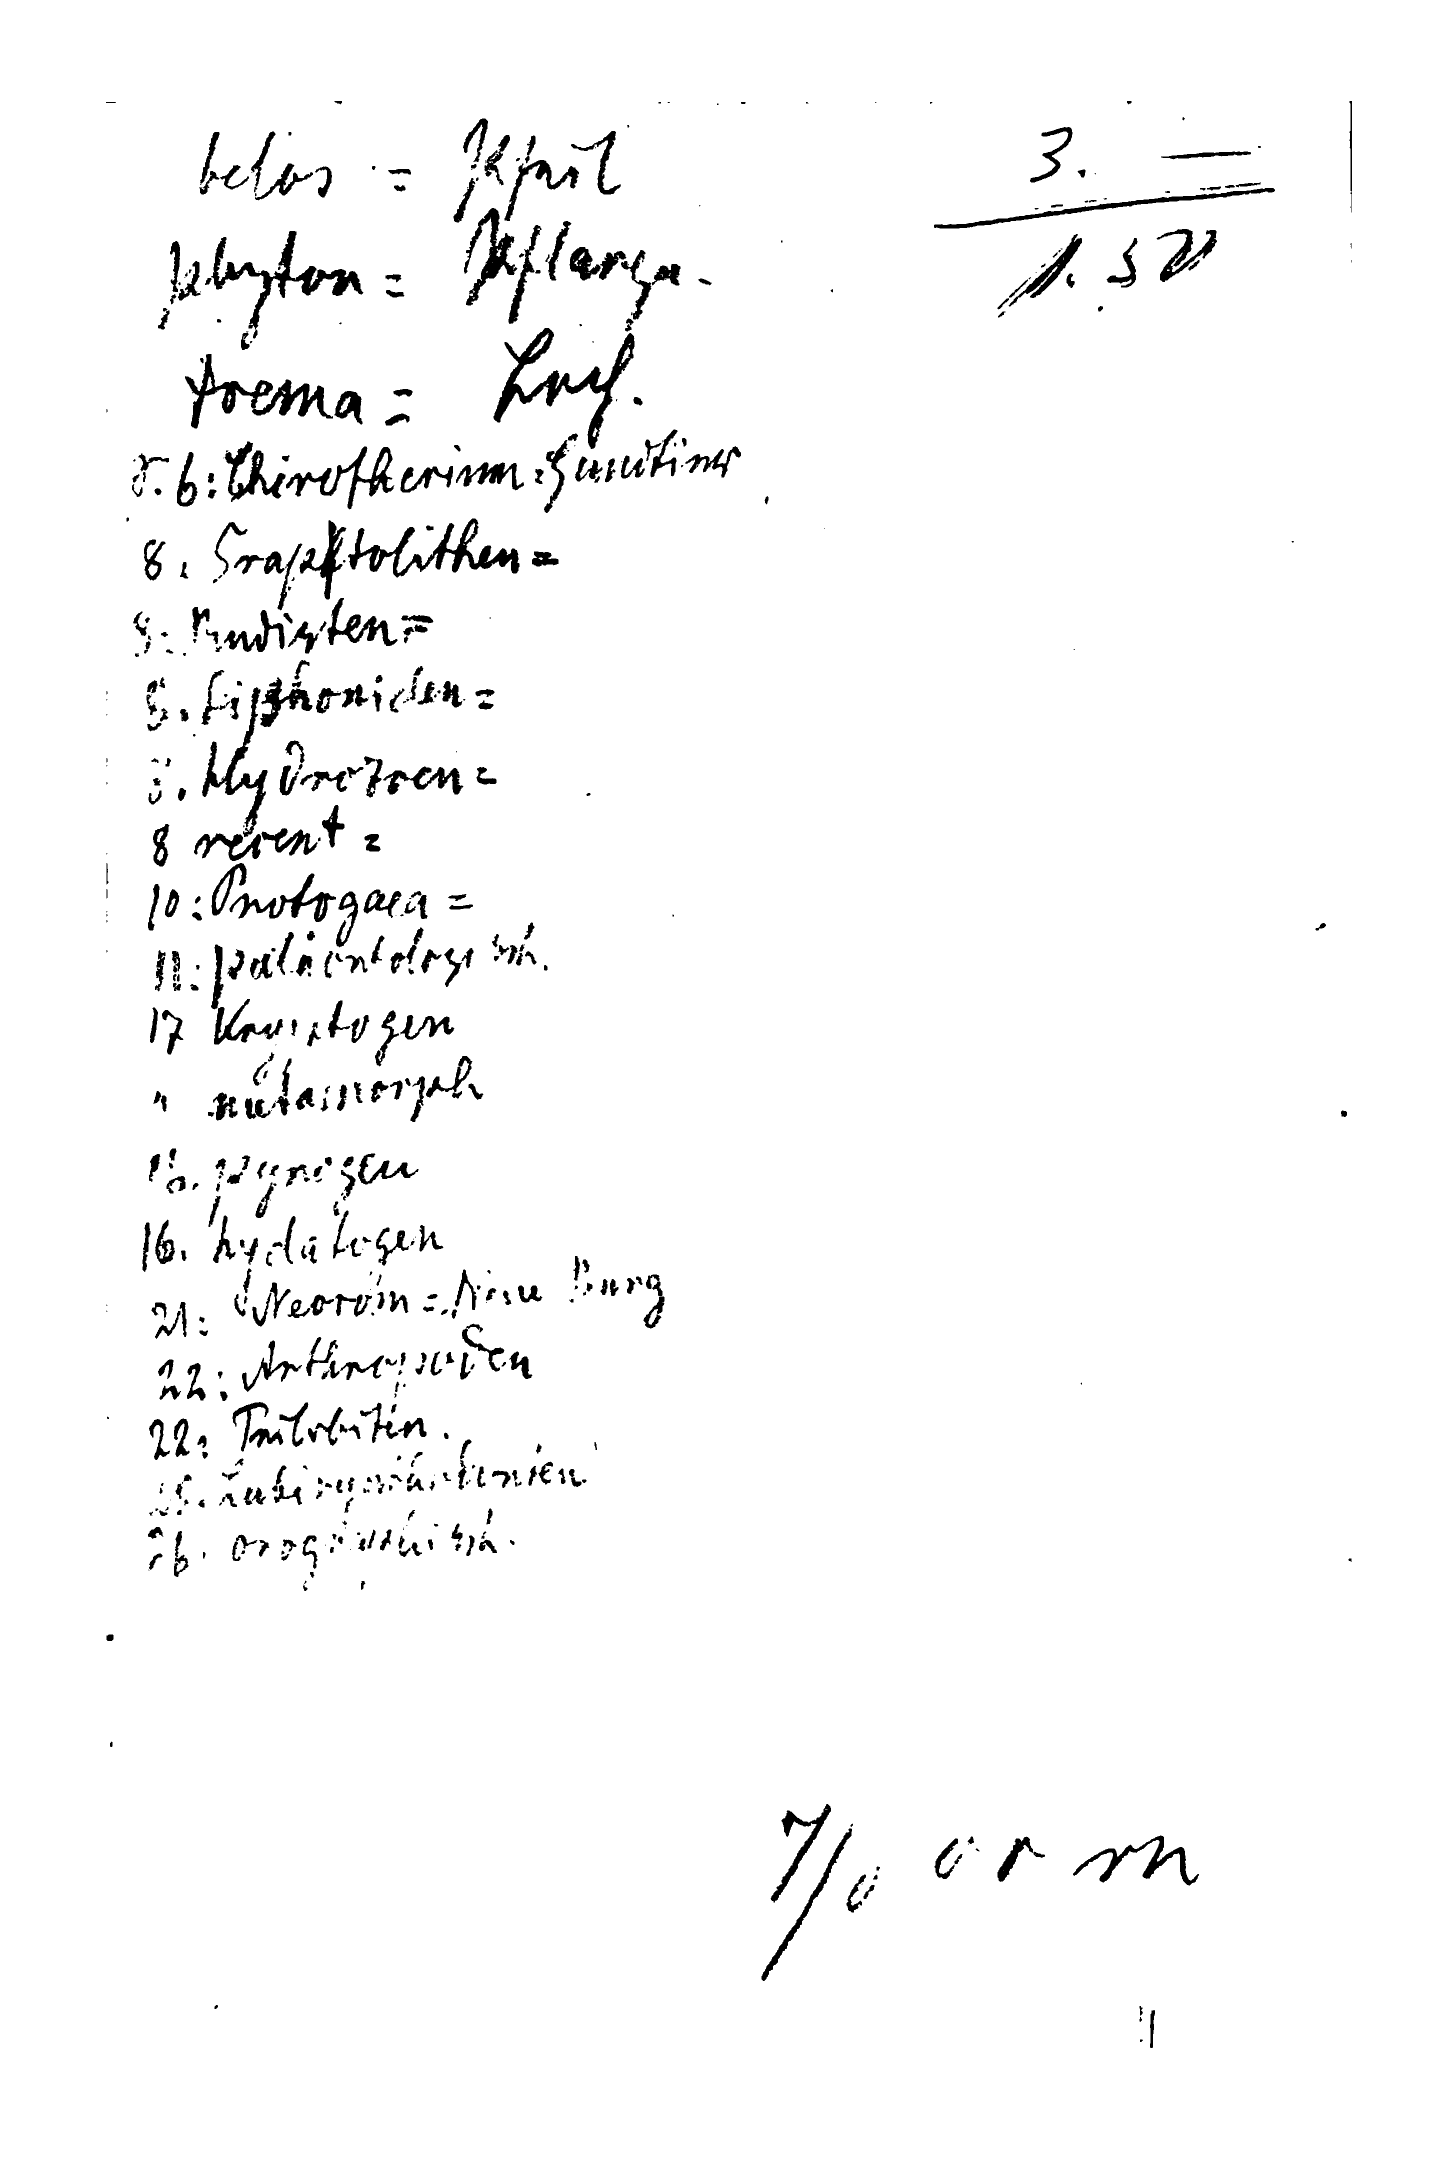 belos = Pfeil
phyton = Pflanze.
trema = Loch.
S. 6: Chirotherium = Handtier
8. Graptolithen =
8. Rudisten =
8. Siphoniden =
8. Hydrozoen =
8 recent =
10: Protogaea =
11: paläontologisch.
17 Kryptogen
" metamorph
16. pyrogen
16. hydatogen
21: Neoröm = Neue Burg
22: Arthropoden
22: Trilobiten.
25.
26. orographisch.
3. —
1. 50